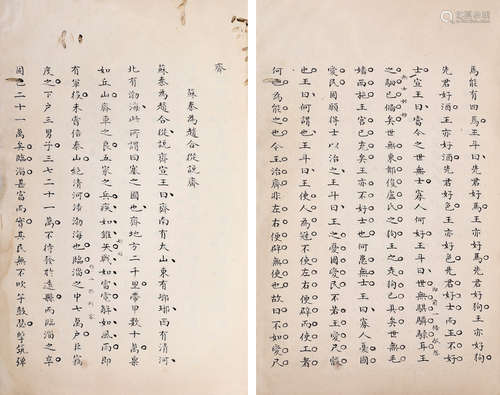 焉能有四焉王斗曰先君好馬王亦好馬先君好狗王亦好狗
先君好酒王亦好酒先君好色王亦好色先君好士而王不好
士宣王曰當今之世無士寡人何好王斗曰世無騏驎騄耳王
之駟已備矣世無東郭俊盧氏之狗王之走狗已具矣世無毛
嬙西施王宮已充矣王亦不好士也何患無士王曰寡人憂國
愛民固願得士以治之王斗曰王之憂國愛民不若王愛尺縠
也王曰何謂也王斗曰王使人為冠不使左右便辟而使工者
何也為能之也今王治齊非左右便辟無使也故曰不如愛尺
齊
蘇秦為趙合從說齊
蘇秦為趙合從說齊宣王曰齊南有太山東有瑯琊西有清河
北有渤海此所謂四塞之國也齊地方二千里帶甲數十萬粟
如丘山齊車之良五家之兵疾如錐矢戰如雷電解如風雨即
有軍役未嘗倍泰山絕清河涉渤海也臨淄之中七萬戶臣竊
度之下戶三男子三七二十一萬不待發於遠縣而臨淄之卒
固已二十一萬矣臨淄甚富而實其民無不吹竽鼓瑟擊筑彈